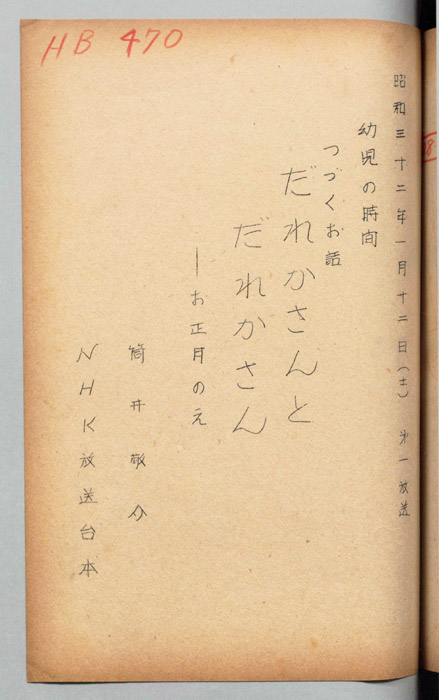 HB 470
昭和三十二年一月十二日(土) 第一放送
幼児の時間
つづくお話
だれかさんと
だれかさん
―お正月のえ
筒井敬介
NHK放送台本